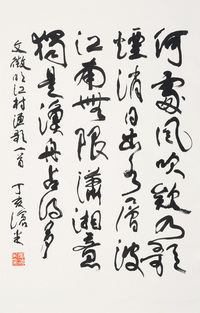 何處風吹欸乃歌
煙消日出水層波
江南無限瀟湘意
獨是漁舟占得多
文徵明江村漁歌一首 丁亥滄米